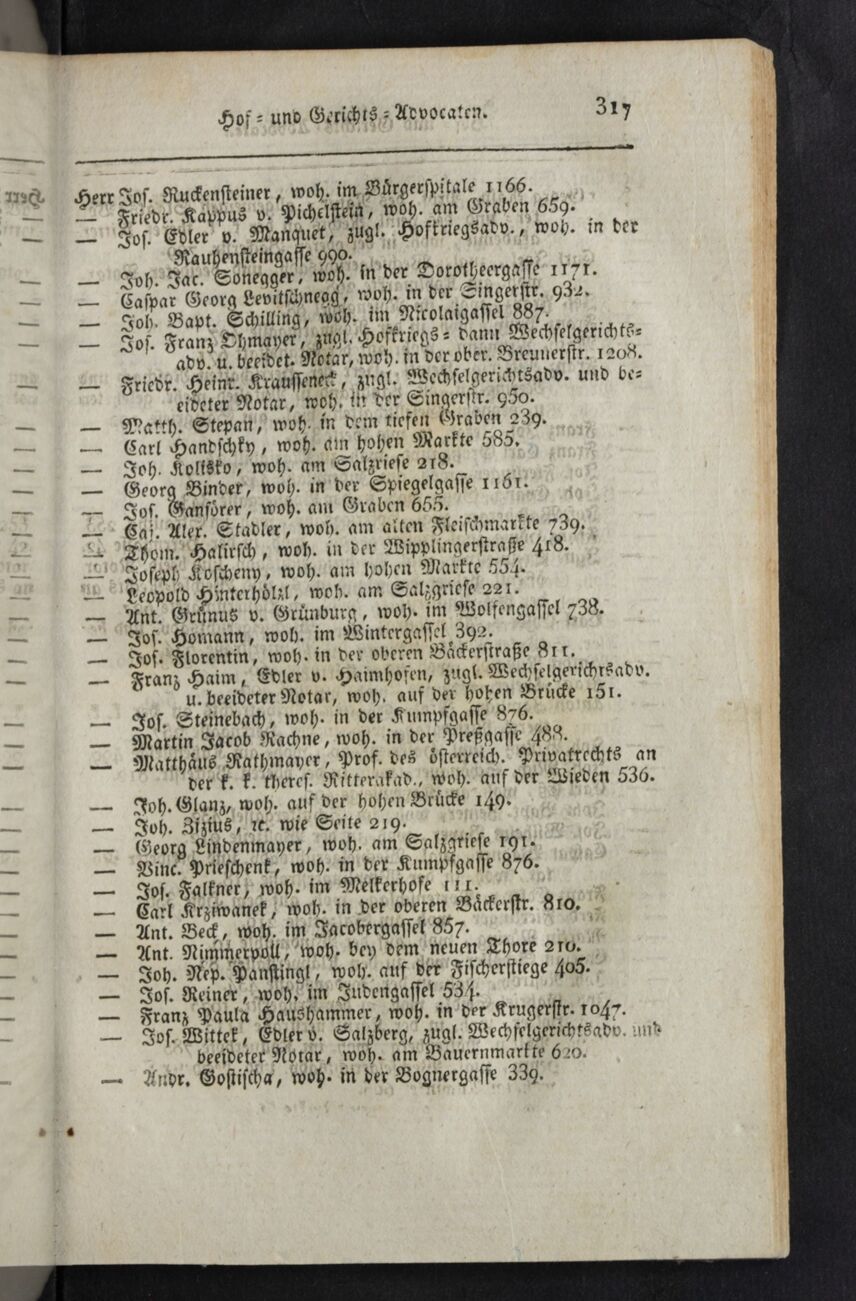 Hof- und Gerichts-Advocaten. 317
Herr Jos. Ruckensteiner, woh. im Bürgerspitale 1166.
— Friedr. Kappus v. Pichelstein, woh. am Graben 659.
— Jos. Edler v. Manquet, zugl. Hofkriegsadv., woh. in der
Rauhensteingasse 990.
— Joh. Jac. Sonegger, woh. in der Dorotheergasse 1171.
— Caspar Georg Levitschnegg, woh. in der Singerstr. 932.
— Joh. Bapt. Schilling, woh. im Nicolaigassel 887.
— Jos. Franz Ohmayer, zugl. Hofkriegs- dann Wechselgerichts-
adv. u. beeidet. Notar, woh. in der ober. Breunerstr. 1208.
— Friedr. Heinr. Krausseneck, zugl. Wechselgerichtsadv. und be-
eideter Notar, woh. in der Singerstr. 950.
— Matth. Stepan, woh. in dem tiefen Graben 239.
— Carl Handschky, woh. am hohen Markte 585.
— Joh. Kolisko, woh. am Salzriese 218.
— Georg Binder, woh. in der Spiegelgasse 1161.
— Jos. Gansörer, woh. am Graben 655.
— Caj. Alex. Stadler, woh. am alten Fleischmarkte 739.
— Thom. Halirsch, woh. in der Wipplingerstraße 418.
— Joseph Koscheny, woh. am hohen Markte 554.
— Leopold Hinterhölzl, woh. am Salzgriese 221.
— Ant. Grünus v. Grünburg, woh. im Wolfengassel 738.
— Jos. Homann, woh. im Wintergassel 392.
— Jos. Florentin, woh. in der oberen Bäckerstraße 811.
— Franz Haim, Edler v. Haimhofen, zugl. Wechselgerichtsadv.
u. beeideter Notar, woh. auf der hohen Brücke 151.
— Jos. Steinebach, woh. in der Kumpfgasse 876.
— Martin Jacob Rachne, woh. in der Preßgasse 488.
— Matthäus Rathmayer, Prof. des österreich. Privatrechts an
der k. k. theres. Ritterakad., woh. auf der Wieden 536.
— Joh. Glanz, woh. auf der hohen Brücke 149.
— Joh. Zizius, ꝛc. wie Seite 219.
— Georg Lindenmayer, woh. am Salzgriese 191.
— Vinc. Prieschenk, woh. in der Kumpfgasse 876.
— Jos. Falkner, woh. im Melkerhofe 111.
— Carl Krziwanek, woh. in der oberen Bäckerstr. 810.
— Ant. Beck, woh. im Jacobergassel 857.
— Ant. Nimmerpoll, woh. bey dem neuen Thore 210.
— Joh. Nep. Panstingl, woh. auf der Fischerstiege 405.
— Jos. Reiner, woh. im Judengassel 534.
— Franz Paula Haushammer, woh. in der Krugerstr. 1047.
— Jos. Wittek, Edler v. Salzberg, zugl. Wechselgerichtsadv. und
beeideter Notar, woh. am Bauernmarkte 620.
— Andr. Gostischa, woh. in der Bognergasse 339.